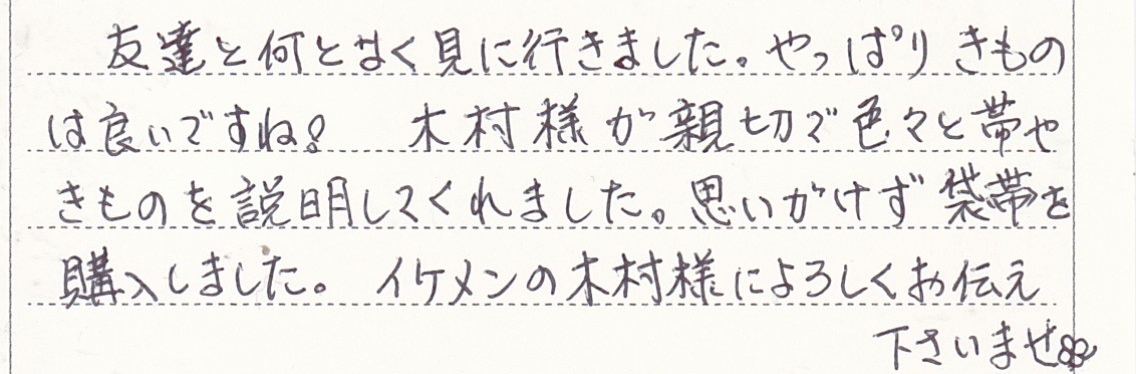 友達と何となく見に行きました。やっぱりきもの
は良いですね! 木村様が親切で色々と帯や
きものを説明してくれました。思いがけず袋帯を
購入しました。イケメンの木村様によろしくお伝え
下さいませ